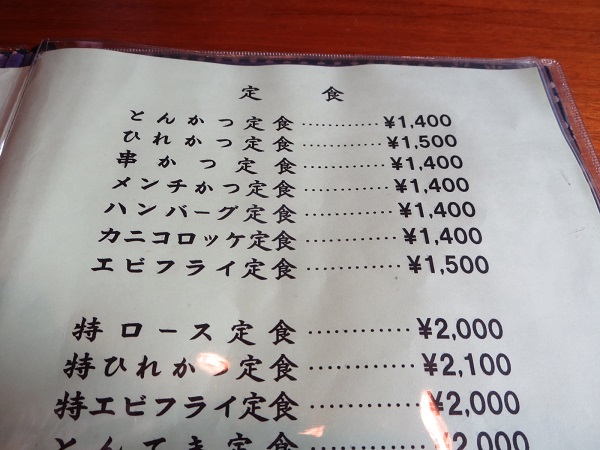 定食
とんかつ定食…………¥1,400
ひれかつ定食…………¥1,500
串かつ定食…………¥1,400
メンチかつ定食…………¥1,400
ハンバーグ定食…………¥1,400
カニコロッケ定食…………¥1,400
エビフライ定食…………¥1,500
特ロース定食…………¥2,000
特ひれかつ定食…………¥2,100
特エビフライ定食…………¥2,000
とんてき定食…………¥2,000